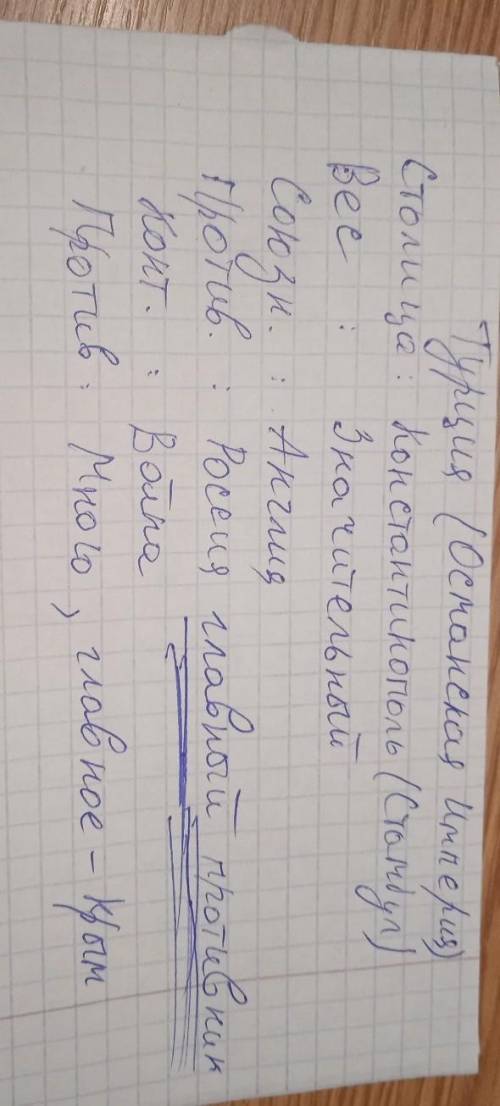 Турция (Османская Империя)
Столица: Константинополь (Стамбул)
Вес : Значительный
Союзн. : Англия
Против. : Россия главный противник
Конт. : Война
Против: Много, главное - Крым